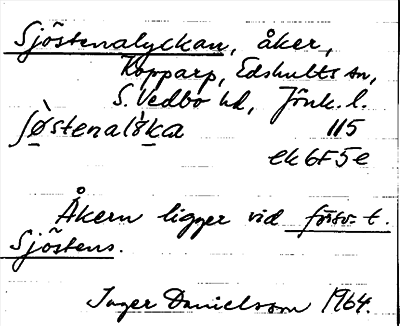 Sjöstenalyckan, åker,
Kopparp, Edshults sn,
S. Vedbo hd, Jönk. l.
115
ek 6F5e
Åkern ligger vid försv. t.
Sjöstens.
Inger Danielsson 1964.